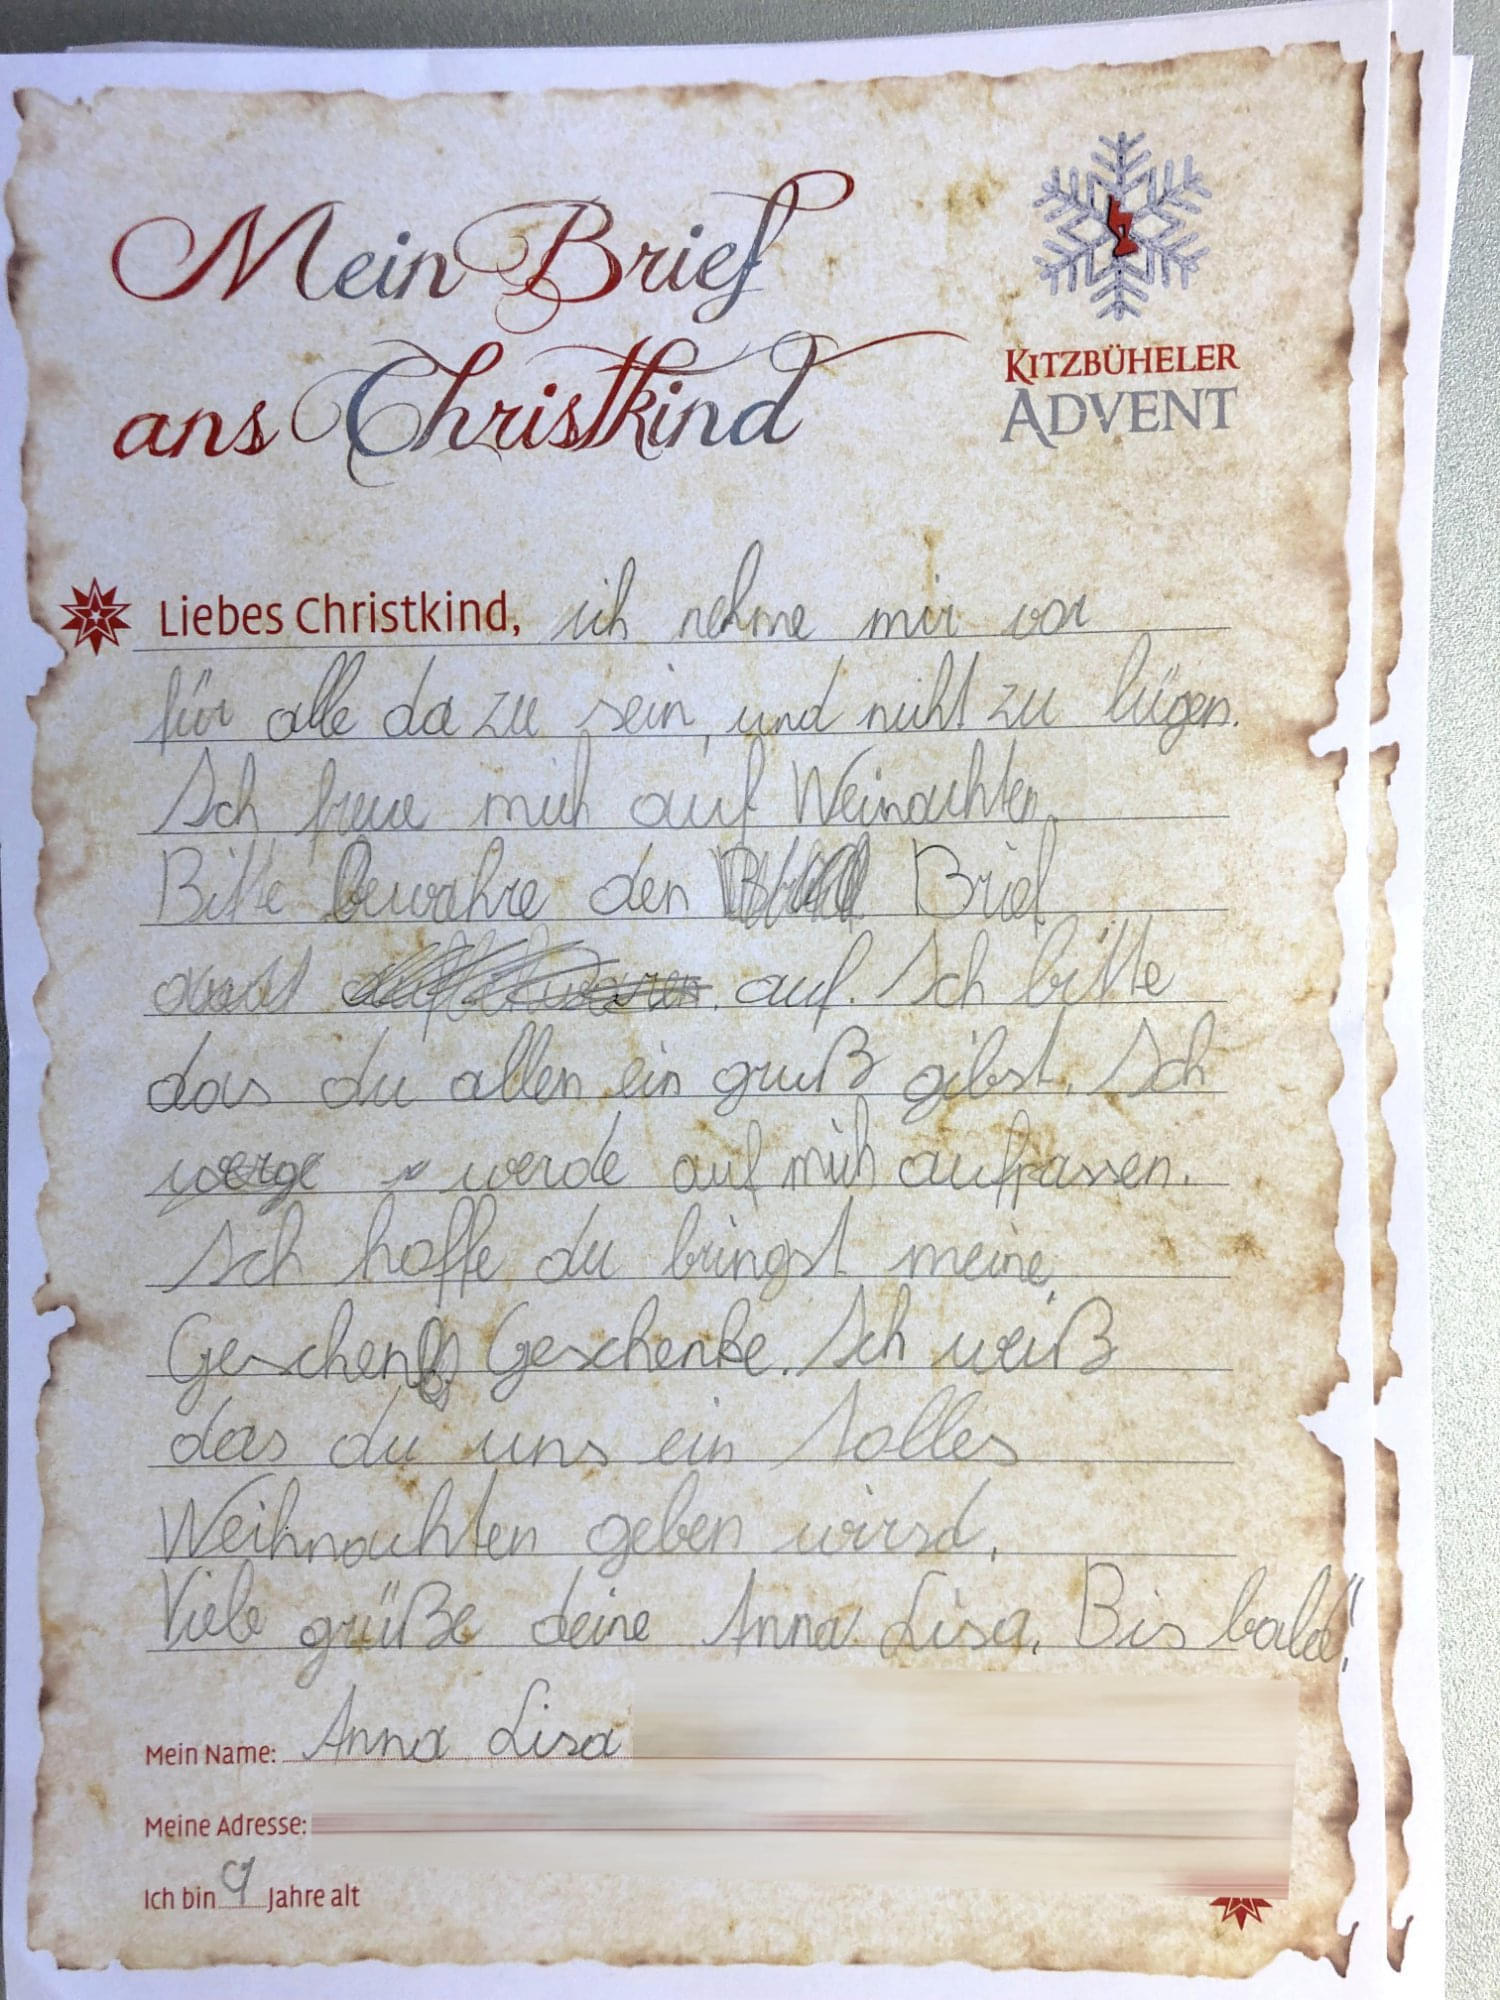 Mein Brief
ans Christkind
KITZBÜHELER
ADVENT
Liebes Christkind, ich nehme mir vor
für alle da zu sein, und nicht zu lügen.
Ich freue mich auf Weinachten.
Bitte bewahre den Brief
auf. Ich bitte
das du allen ein gruß gibst. Ich
werge werde auf mich aufpassen.
Ich hoffe du bringst meine
Geschen Geschenke. Ich weiß
das du uns ein tolles
Weihnachten geben wirsd.
Viele grüße deine Anna Lisa. Bis bald!
Mein Name: Anna Lisa
Meine Adresse:
Ich bin 9 Jahre alt